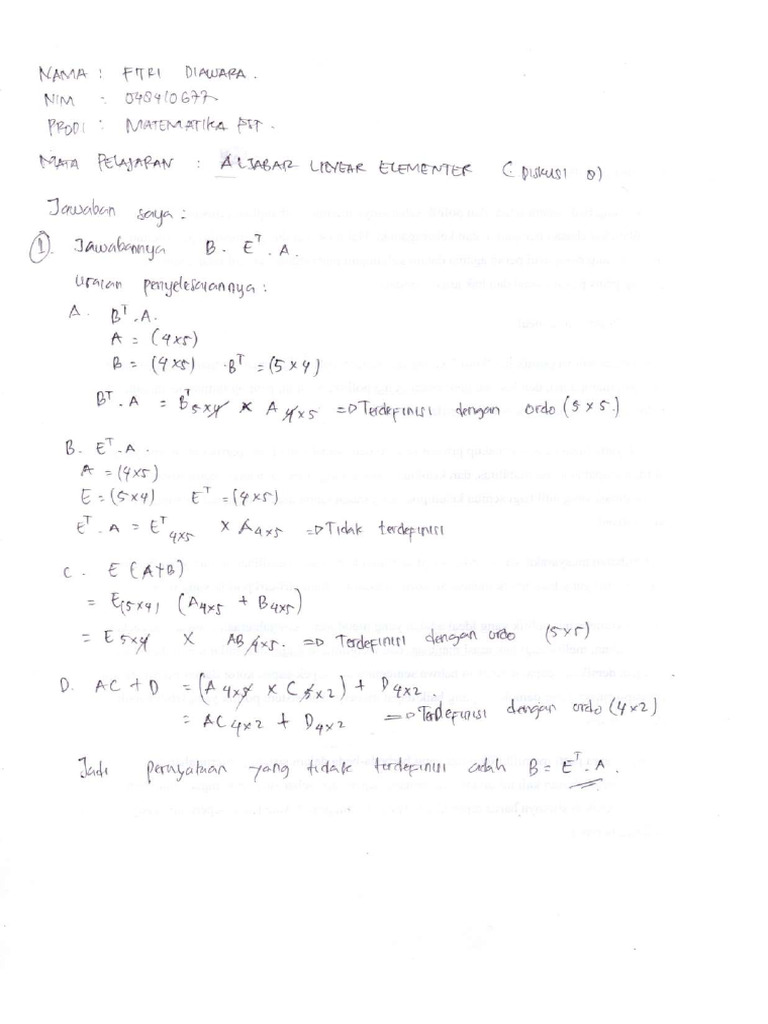 NAMA : FITRI DIAWARA.
NIM : 048410677
PRODI : MATEMATIKA
MATA PELAJARAN : ALJABAR LINEAR ELEMENTER (DISKUSI
Jawaban saya :
①. Jawabannya B. Eᵀ. A.
uraian penyelesaiannya :
A. Bᵀ.A.
A = (4x5)
B = (4x5) Bᵀ = (5x4)
Bᵀ. A = Bᵀ5x4 x A 4x5 => Terdefinisi dengan ordo (5x5.)
B. Eᵀ.A.
A = (4x5)
E = (5x4) Eᵀ = (4x5)
Eᵀ. A = Eᵀ4x5 x A4x5 => Tidak terdefinisi
C. E (A+B)
= E(5x4) (A4x5 + B4x5)
= E 5x4 x AB 4x5. => Terdefinisi dengan ordo (5x5)
D. AC + D = (A 4x5 x C 5x2) + D 4x2.
= AC 4x2 + D 4x2 => Terdefinisi dengan ordo (4x2)
Jadi pernyataan yang tidak terdefinisi adlah B = Eᵀ. A.